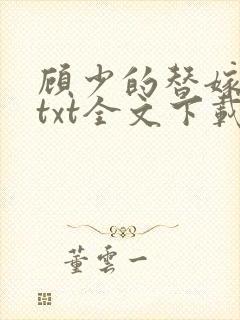 顾少的替嫁
txt全文下载
董云一